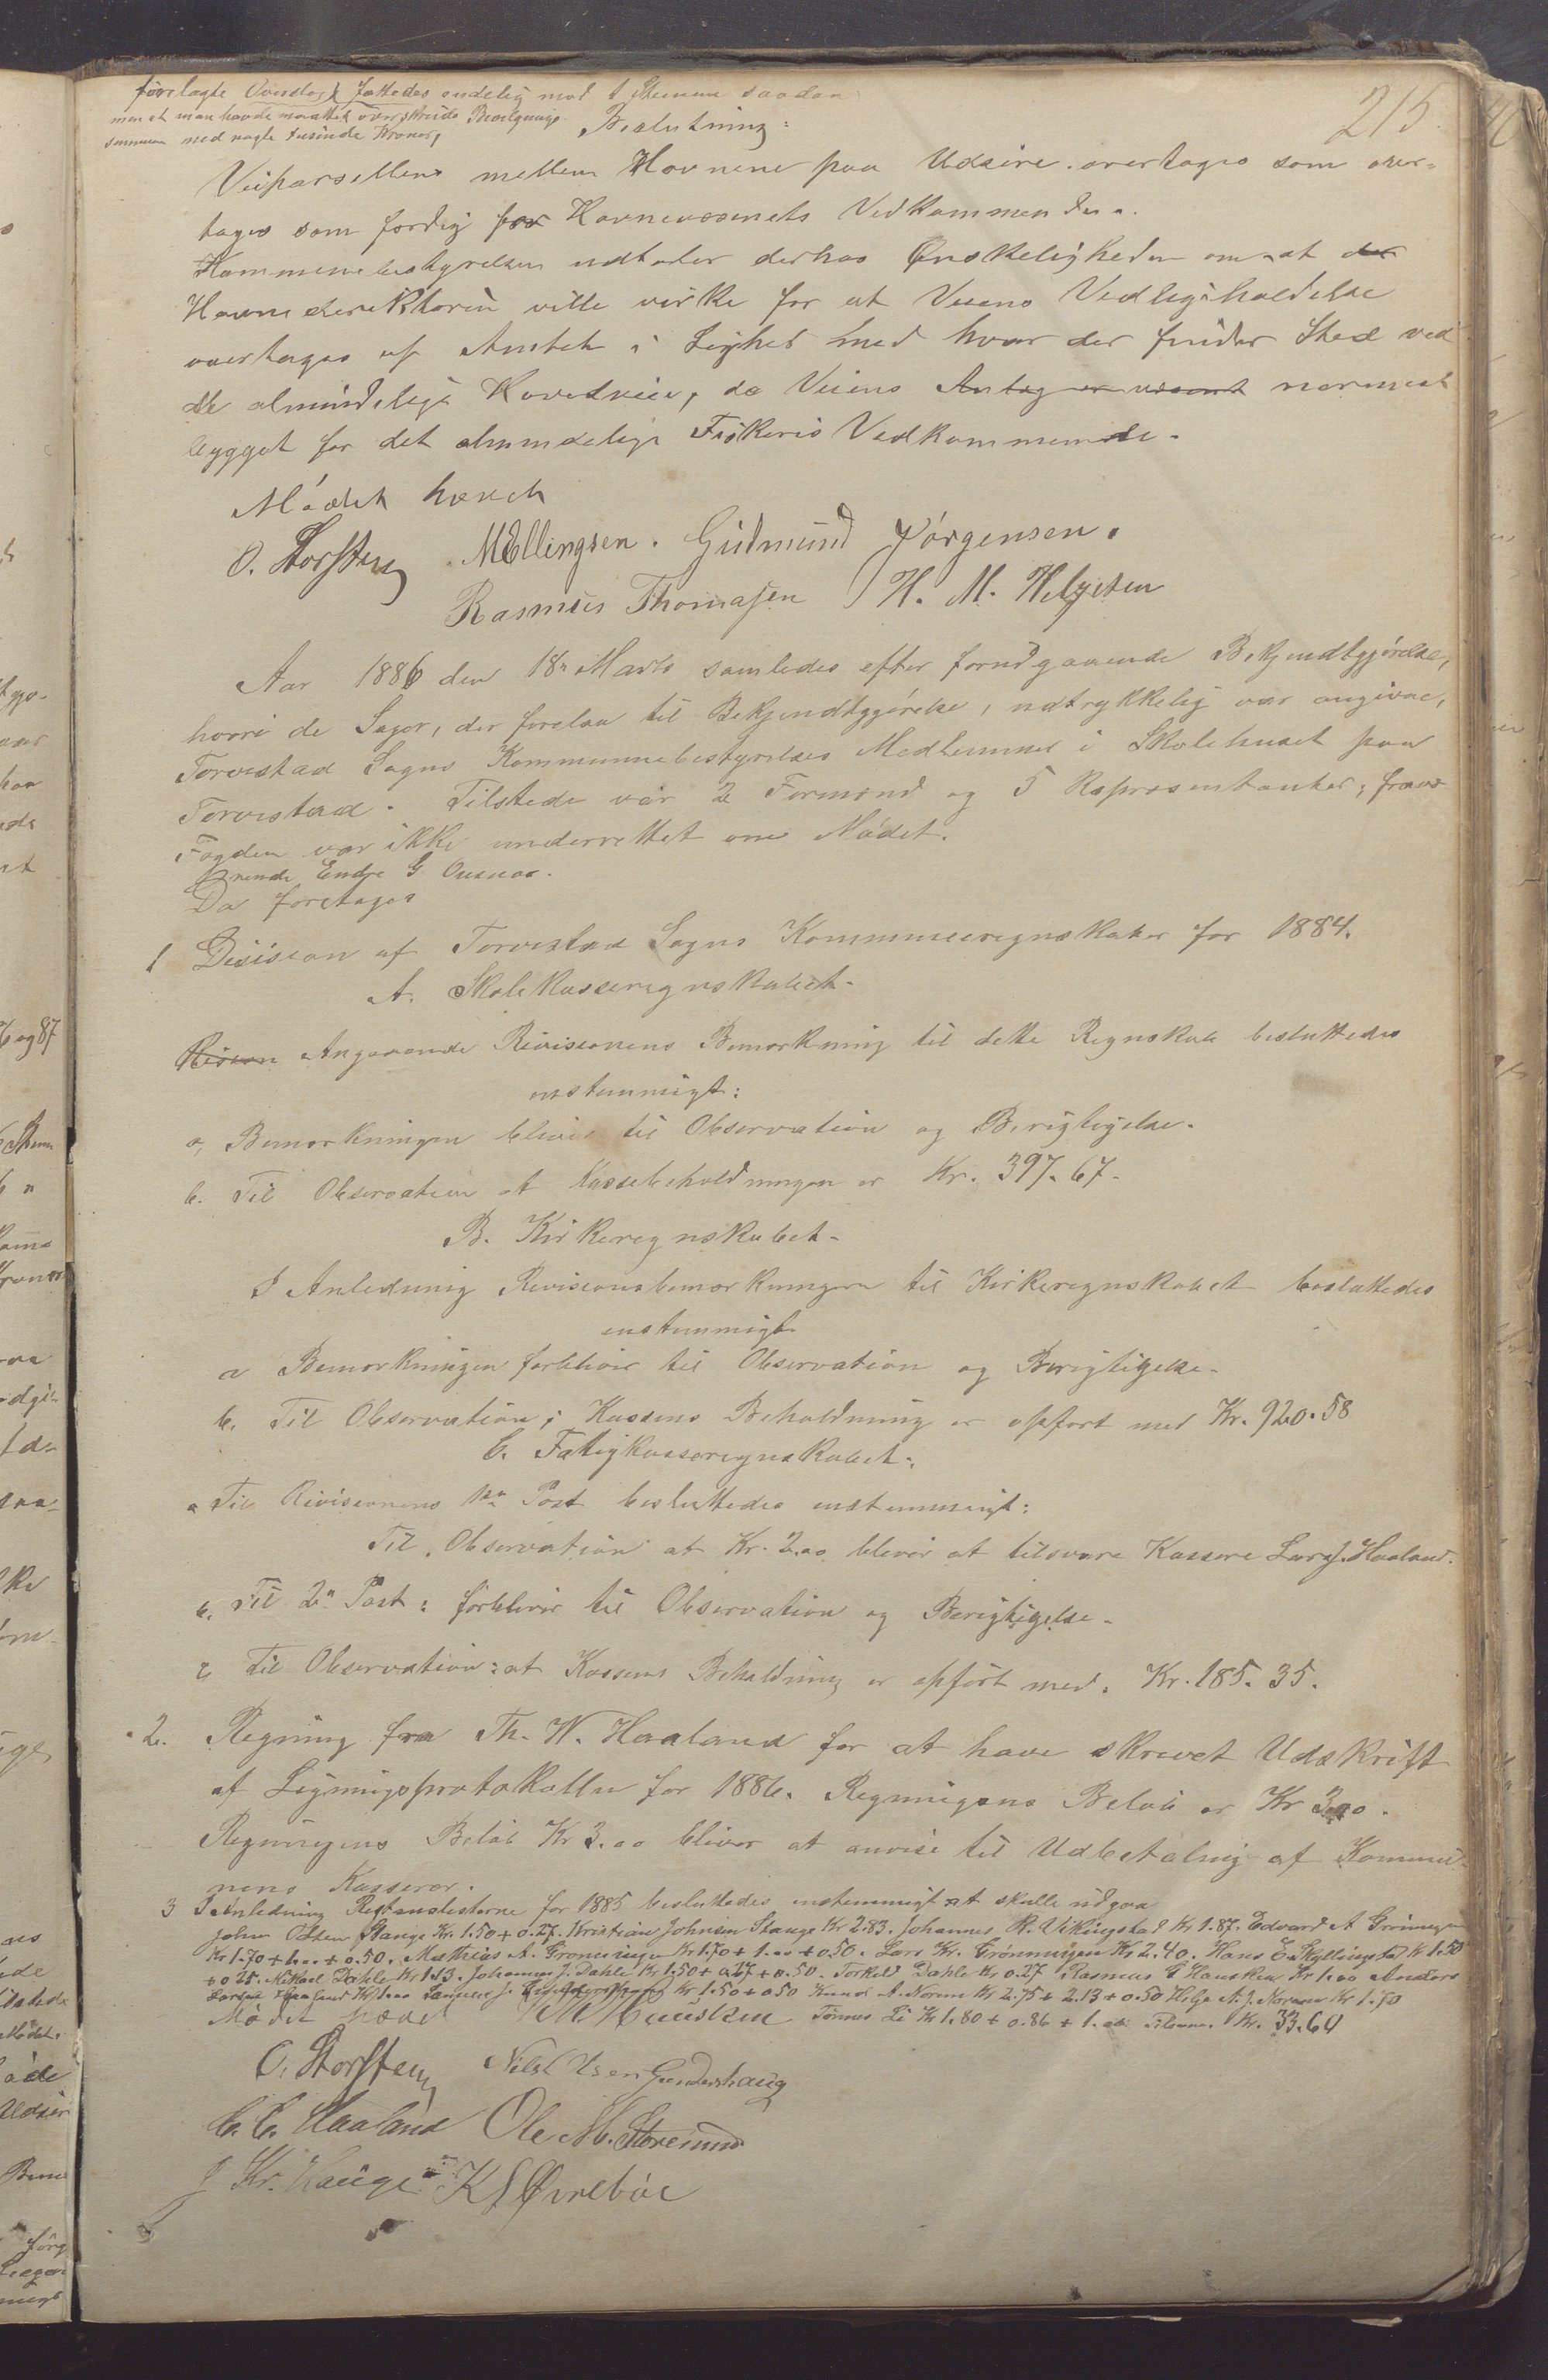 215
forelagte Værslag fattedes endelig mod 1 Stemme saadan
men at man havde maattet overskride Bevilgnings
summen med nogle tusinde Kroner,
Beslutning:
Veiparsellene mellem Havnene paa Udsire overtages som over-
tages som færdig for Havnevæsenets Vedkommende.
Kommunebestyrelsen udtaler derhos Ønskeligheden om at der
Havnedirektoren ville virke for at Veiens Vedligeholdelse
overtages af Amtet i Lighed med hvor der finder Sted ved
de almindelige Hovedveie, da Veiens Anlæg er næsent nærmest
bygget for det almindelige Fiskeris Vedkommende.
Mødet hævet
O. Storsten M Ellingsen. Gudmund Jørgensen.
Rasmus Thomasen H. M. Helgesen
Aar 1886 den 18n Marts samledes efter forudgaaende Bekjendtgjørelse,
hvori de Sager, der forelaa til Bekjendtgjørelse, udtrykkelig var angivne,
Torvestad Sogns Kommunebestyrelses Medlemmer i Skolehuset paa
Torvestad. Tilstede var 2 Formænd og 5 Repræsentanter; fravæ-
Fogden var ikke underrettet om Mødet.
rende Endre G Ousnes.
Da foretages
1 Desision af Torvestad Sogns Kommuneregnskaber for 1884.
A. Skolekasseregnskabet.
Angaaende Revisionens Bemærkning til dette Regnskab besluttedes
enstemmigt:
a, Bemærkningen bliver til Observation og Berigtigelse.
b. Til Observation at Kassebeholdningen er Kr. 397.67.
B. Kirkeregnskabet.
I Anledning Revisionsbemærkningen til Kirkeregnskabet besluttedes
enstemmigt
a Bemærkningen forbliver til Observation og Berigtigelse.
b. Til Observation; Kassens Beholdning er opført med Kr. 920.58
C. Fatigkasseregnskabet.
a Til Revisionens 1ste Post besluttedes enstemmigt:
Til Observation at Kr. 2.00 bliver at tilsvare Kassere Lars J. Haaland.
b. Til 2n Post: forbliver til Observation og Berigtigelse.
c Til Observation: at Kassens Beholdning er opført med. Kr. 185.35.
2. Regning fra Th. W. Haaland for at have skrevet Udskrift
af Ligningsprotokollen for 1886. Regningens Beløb er Kr 3.00.
Regningens Beløb Kr 3.00 bliver at anvise til Udbetaling af Kommu-
nens Kasserer.
3 I Anledning Restanslisterne for 1885 besluttedes enstemmigt at skulle udgaa
John Olsen Stange Kr. 1.50 + 0.27. Kristian Johnsen Stange Kr 2.83. Johannes R. Vikingstad Kr 1.87. Edvard A Grønningen
Kr 1.70 + 1.00 + 0.50. Mathias A. Grønningen Kr 1.50 + 1.00 + 0.50. Lars Kr. Grønningen Kr 2.40. Hans E. Skyllingstad Kr 1.50
+ 0.25. Mikael Dahle Kr 1.13. Johannes J. Dahle Kr 1.50 + 0.27 + 0.50. Torkild Dahle Kr 0.27 Rasmus G Hausken Kr 1.00 Anders
Larsen Haaland Kr 1.00 Kr 1.50 + 0.50 Knud A. Norem Kr 2.75 + 2.13 + 0.50 Helge A. J. Norem Kr 1.50
Mødet hævet M Hausken Tønnes Li Kr 1.80 + 0.86 + 1.00 Tilsammen Kr. 33.64
O. Storsten Nils Olsen Gunnarshaug
C. C. Haaland Ole M. Storesund
J Kr. Hauge K S Øvrebøe